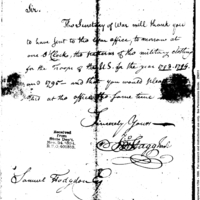 Sir,
The Secretary of War will thank you
to have sent to this office, to morrow at
one O'Clock, the patterns of the military clothing
for the Troops of the U.S. for the year 1793. 1794
and 1795 - and that you would please
call at the office the same time
Sincerely Yours
Received
from
State Dep't.
Samuel Hodgdon Esq